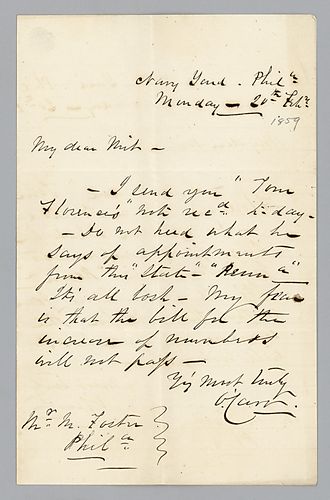 Navy Yard. Phila
Monday — 20th Feby
1859
My dear
— I send you "Tom
Florence's" note recd to-day —
— Do not heed what he
says of appointments
from this "State" — "Penna"
It's all bosh — My fear
is that the bill for the
increase of numbers
will not pass —
Yrs most truly
Mr. M. Foster
Phila